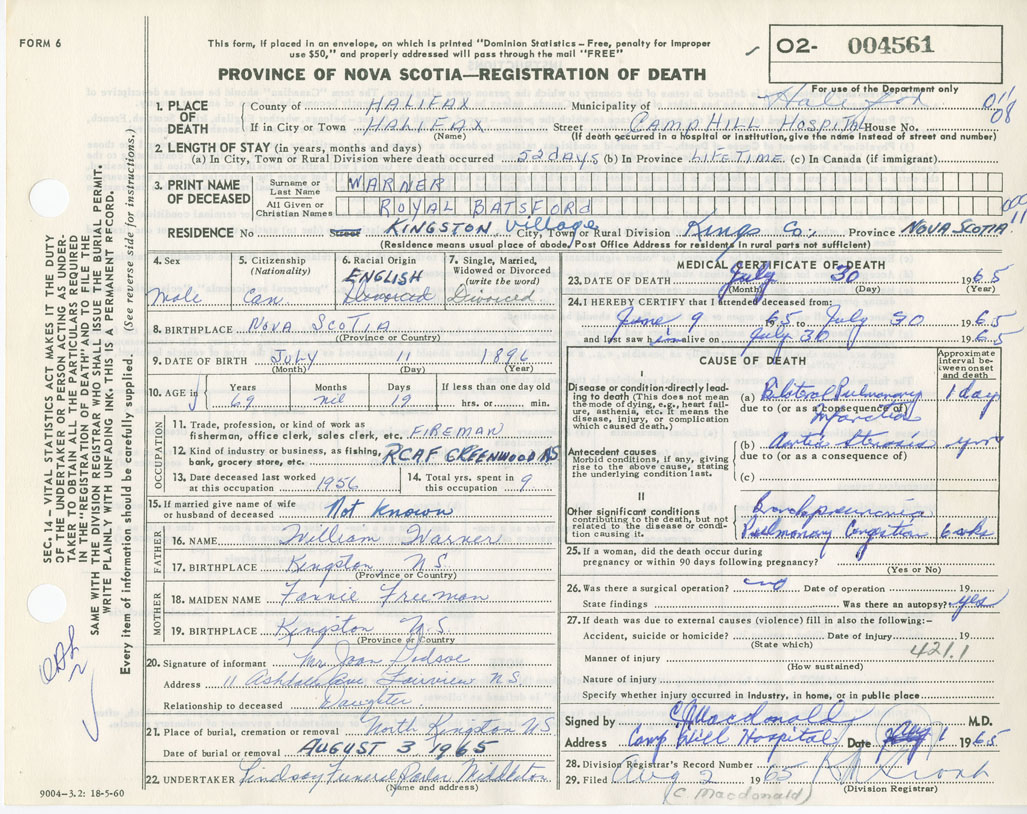 FORM 6
This form, if placed in an envelope, on which is printed "Dominion Statistics – Free, penalty for improper
use $50," and properly addressed will pass through the mail "FREE"
02- 004561
For use of the Department only
PROVINCE OF NOVA SCOTIA—REGISTRATION OF DEATH
1. PLACE OF DEATH
County of HALIFAX Municipality of Halifax 011
If in City or Town HALIFAX Street CAMP HILL HOSPITAL House No. 08
(Name) (If death occurred in a hospital or institution, give the name instead of street and number)
2. LENGTH OF STAY (in years, months and days)
(a) In City, Town or Rural Division where death occurred 52 days (b) In Province LIFETIME (c) In Canada (if immigrant)
3. PRINT NAME OF DECEASED
Surname or Last Name WARNER
All Given or Christian Names ROYAL BATSFORD
RESIDENCE No Street KINGSTON village City, Town or Rural Division Kings Co., Province NOVA SCOTIA
(Residence means usual place of abode, Post Office Address for residents in rural parts not sufficient)
4. Sex
Male
5. Citizenship
(Nationality)
Can.
6. Racial Origin
ENGLISH
Divorced
7. Single, Married,
Widowed or Divorced
(write the word)
Divorced
8. BIRTHPLACE NOVA SCOTIA
(Province or Country)
9. DATE OF BIRTH JULY 11 1896
(Month) (Day) (Year)
10. AGE in
Years 69
Months nil
Days 19
If less than one day old
hrs. or min.
OCCUPATION
11. Trade, profession, or kind of work as
fisherman, office clerk, sales clerk, etc. FIREMAN
12. Kind of industry or business, as fishing,
bank, grocery store, etc. RCAF GREENWOOD NS
13. Date deceased last worked
at this occupation 1956
14. Total yrs. spent in
this occupation 9
15. If married give name of wife
or husband of deceased Not known
FATHER
16. NAME William Warner
17. BIRTHPLACE Kingston N.S.
(Province or Country)
MOTHER
18. MAIDEN NAME Fannie Freeman
19. BIRTHPLACE Kingston N.S.
(Province or Country)
20. Signature of informant Joan
Address 11 Fairview N S
Relationship to deceased Daughter
21. Place of burial, cremation or removal North Kingston NS
Date of burial or removal AUGUST 3 1965
22. UNDERTAKER Lindsay Funeral Parlor Middleton
(Name and address)
9004-3.2: 18-5-60
MEDICAL CERTIFICATE OF DEATH
23. DATE OF DEATH July 30 1965
(Month) (Day) (Year)
24. I HEREBY CERTIFY that I attended deceased from:
June 9 1965 to July 30 1965
and last saw him alive on July 30 1965
CAUSE OF DEATH
Approximate
interval be-
tween onset
and death
I
Disease or condition directly lead-
ing to death (This does not mean
the mode of dying, e.g., heart fail-
ure, asthenia, etc. It means the
disease, injury, or complication
which caused death.)
(a) Bilateral Pulmonary 1 day
due to (or as a consequence of)
Infarction
Antecedent causes
Morbid conditions, if any, giving
rise to the above cause, stating
the underlying condition last.
(b) Aortic Stenosis yrs
due to (or as a consequence of)
(c)
II
Other significant conditions
contributing to the death, but not
related to the disease or condi-
tion causing it.
Bronchopneumonia
Pulmonary Congestion 6 wks
25. If a woman, did the death occur during
pregnancy or within 90 days following pregnancy?
(Yes or No)
26. Was there a surgical operation? no Date of operation 19
State findings Was there an autopsy? yes
27. If death was due to external causes (violence) fill in also the following:-
Accident, suicide or homicide? Date of injury 19
(State which)
421.1
Manner of injury
(How sustained)
Nature of injury
Specify whether injury occurred in industry, in home, or in public place
Signed by C Macdonald M.D.
Address Camp Hill Hospital Date Aug 1 1965
28. Division Registrar's Record Number
29. Filed Aug 2 1965
(Division Registrar)
(C. Macdonald)
SEC. 14 – VITAL STATISTICS ACT MAKES IT THE DUTY
OF THE UNDERTAKER OR PERSON ACTING AS UNDER-
TAKER TO OBTAIN ALL THE PARTICULARS REQUIRED
IN THE "REGISTRATION OF DEATH" AND TO FILE THE
SAME WITH THE DIVISION REGISTRAR WHO SHALL ISSUE THE BURIAL PERMIT.
WRITE PLAINLY WITH UNFADING INK. THIS IS A PERMANENT RECORD.
Every item of information should be carefully supplied. (See reverse side for instructions.)